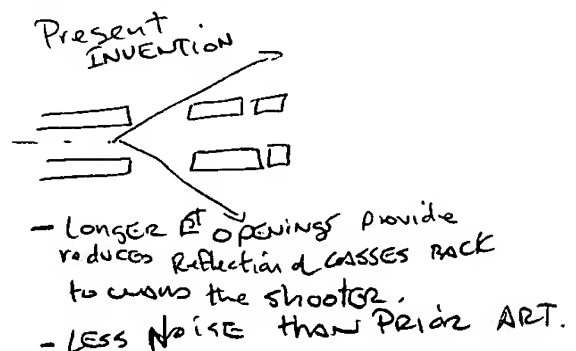 Present
INVENTION
- LONGER OPENINGS provide
reduces Reflection of GASSES BACK
the shooter.
- LESS NOISE than PRIOR ART.